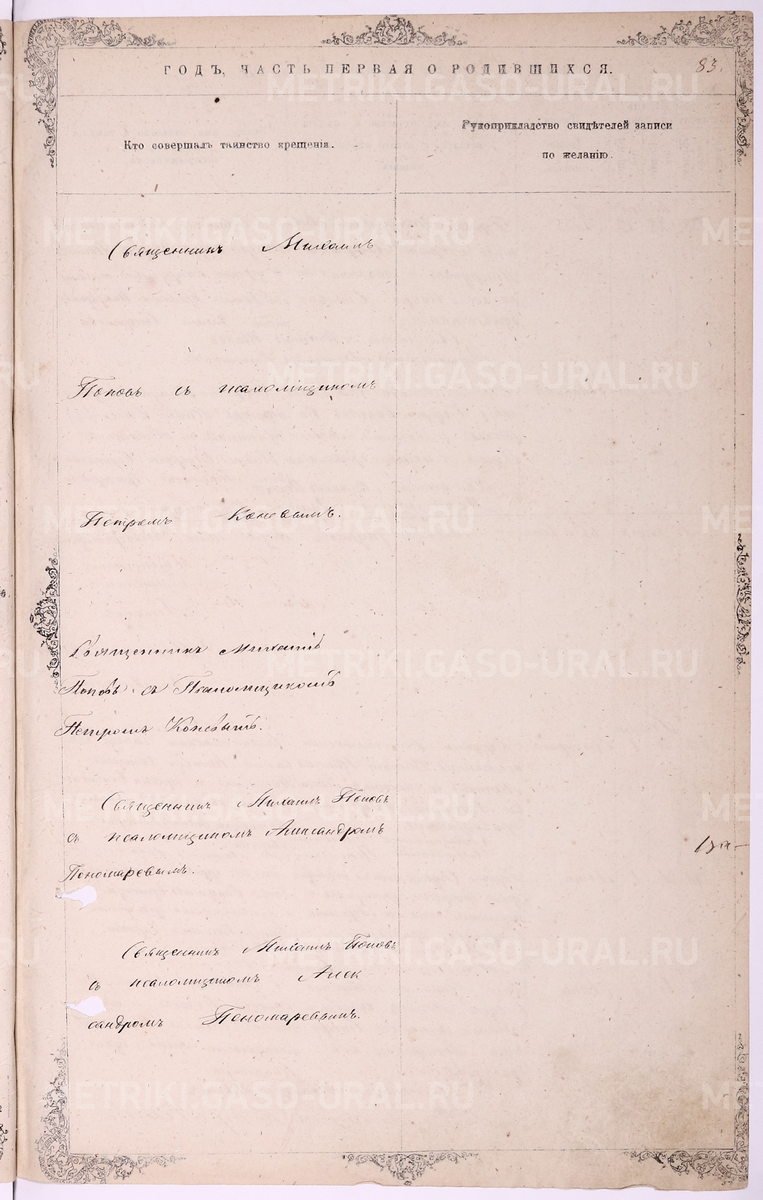 ГОДЪ, ЧАСТЬ ПЕРВАЯ О РОДИВШИХСЯ.
83.
Кто совершалъ таинство крещенія.
Рукоприкладство свидѣтелей записи
по желанію.
Священникъ Михаилъ
Поповъ съ псаломщикомъ
Петромъ
Священникъ Михаилъ
Поповъ съ Псаломщикомъ
Петромъ
Священникъ Михаилъ Поповъ
съ псаломщикомъ Александромъ
Пономаревымъ.
Священникъ Михаилъ Поповъ
съ псаломщикомъ Алек
сандромъ Пономаревымъ.
METRIKI.GASO-URAL.RU